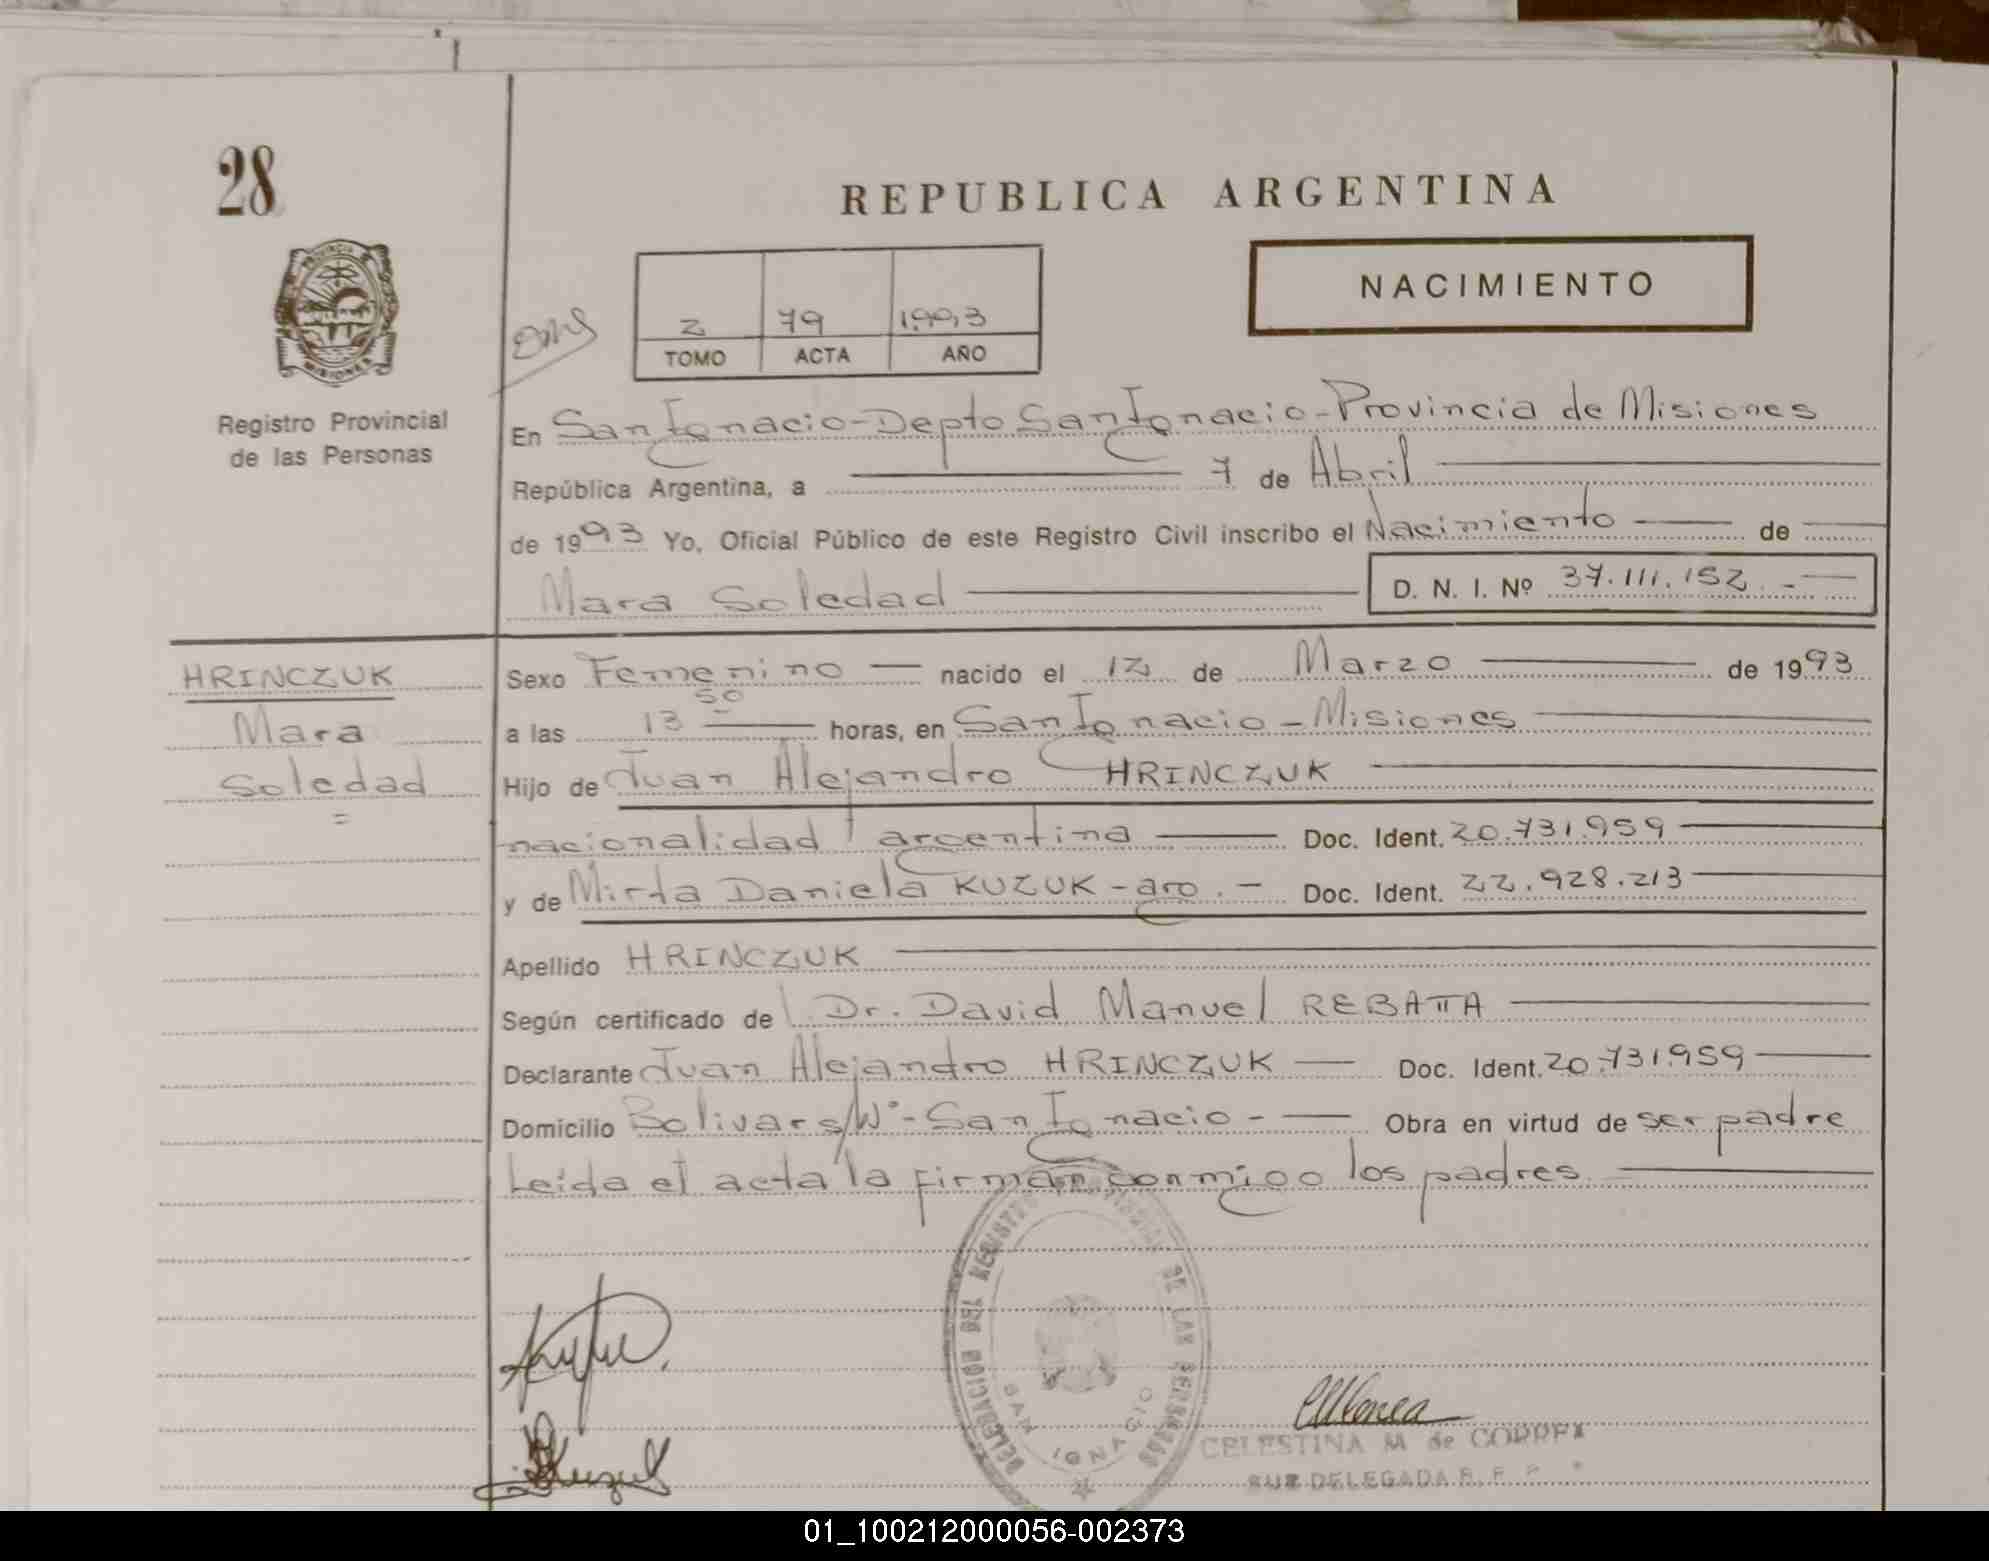 28
REPUBLICA ARGENTINA
NACIMIENTO
PROVINCIA DE
MISIONES
Registro Provincial
de las Personas
2 79 1.993
TOMO ACTA AÑO
En San Ignacio-Depto San Ignacio-Provincia de Misiones
República Argentina, a 7 de Abril
de 1993 Yo, Oficial Público de este Registro Civil inscribo el Nacimiento de
Mara Soledad D. N. I. Nº 37.111.152.-
HRINCZUK
Mara
Soledad
Sexo Femenino nacido el 12 de Marzo de 1993
a las 13 50 horas, en San Ignacio-Misiones
Hijo de Juan Alejandro HRINCZUK
nacionalidad argentina Doc. Ident. 20.731.959
y de Mirta Daniela KUZUK-arg.- Doc. Ident. 22.928.213
Apellido HRINCZUK
Según certificado de Dr. David Manuel REBATTA
Declarante Juan Alejandro HRINCZUK Doc. Ident. 20.731.959
Domicilio Bolivar s/Nº-San Ignacio- Obra en virtud de ser padre
Leida el acta la firman conmigo los padres
DELEGACION DEL REGISTRO DE LAS PERSONAS
SAN IGNACIO
CELESTINA M de CORREA
SUB DELEGADA R. P. P.
01_100212000056-002373